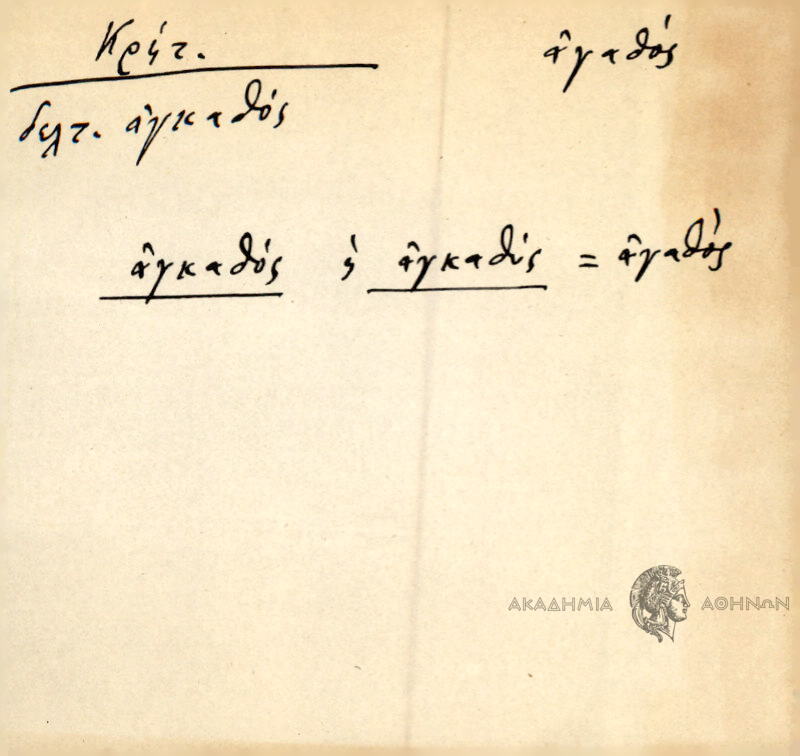 Κρήτ. ἀγαθός
δελτ. ἀγκαθός
ἀγκαθός ἡ ἀγκαθός = ἀγαθός
ΑΚΑΔΗΜΙΑ ΑΘΗΝΩΝ